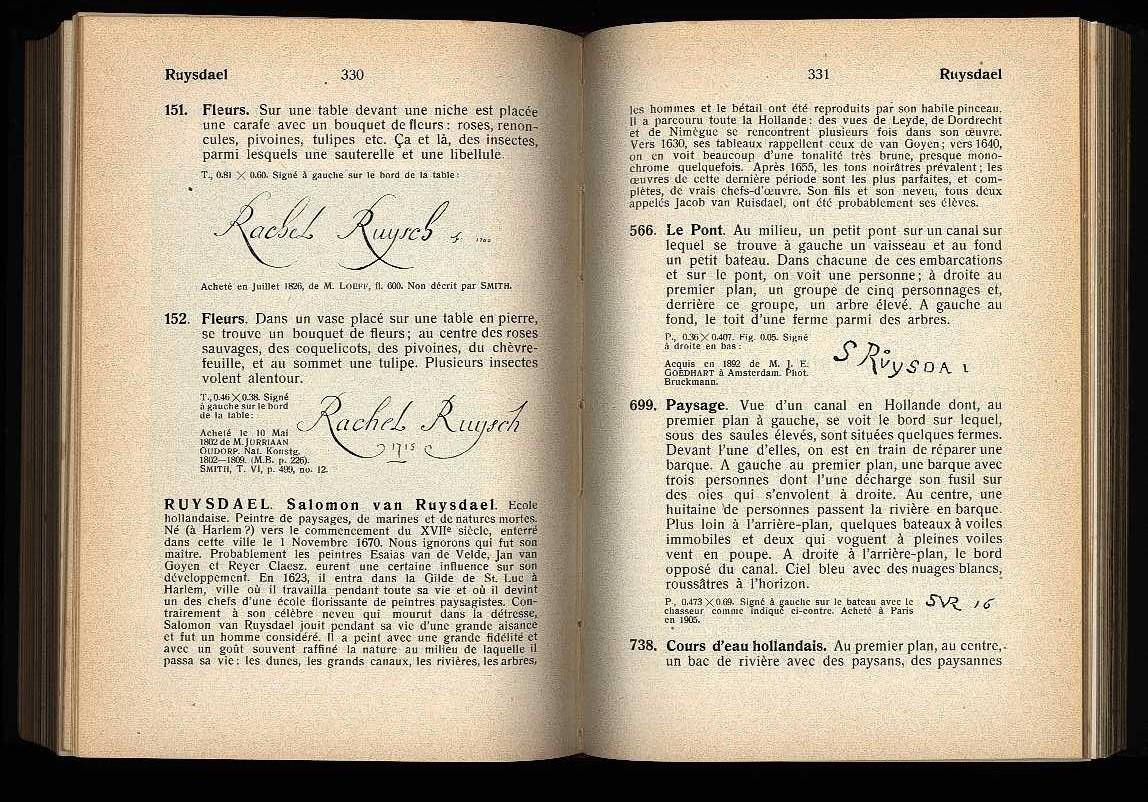 Ruysdael 330
151. Fleurs. Sur une table devant une niche est placée
une carafe avec un bouquet de fleurs: roses, renon-
cules, pivoines, tulipes etc. Ça et là, des insectes,
parmi lesquels une sauterelle et une libellule.
T., 0.81 × 0.60. Signé à gauche sur le bord de la table:
Rachel Ruysch f.
Acheté en Juillet 1826, de M. LOEFF, fl. 600. Non décrit par SMITH.
152. Fleurs. Dans un vase placé sur une table en pierre,
se trouve un bouquet de fleurs; au centre des roses
sauvages, des coquelicots, des pivoines, du chèvre-
feuille, et au sommet une tulipe. Plusieurs insectes
volent alentour.
T., 0.46 × 0.38. Signé
à gauche sur le bord
de la table:
Rachel Ruysch
1715
Acheté le 10 Mai
1802 de M. JURRIAAN
OUDORP. Nat. Konstg.
1802—1809. (M.B. p. 226).
SMITH, T. VI, p. 499, no. 12.
RUYSDAEL. Salomon van Ruysdael. Ecole
hollandaise. Peintre de paysages, de marines et de natures mortes.
Né (à Harlem?) vers le commencement du XVIIe siècle, enterré
dans cette ville le 1 Novembre 1670. Nous ignorons qui fut son
maître. Probablement les peintres Esaias van de Velde, Jan van
Goyen et Reyer Claesz. eurent une certaine influence sur son
développement. En 1623, il entra dans la Gilde de St. Luc à
Harlem, ville où il travailla pendant toute sa vie et où il devint
un des chefs d'une école florissante de peintres paysagistes. Con-
trairement à son célèbre neveu qui mourut dans la détresse,
Salomon van Ruysdael jouit pendant sa vie d'une grande aisance
et fut un homme considéré. Il a peint avec une grande fidélité et
avec un goût souvent raffiné la nature au milieu de laquelle il
passa sa vie: les dunes, les grands canaux, les rivières, les arbres,
331 Ruysdael
les hommes et le bétail ont été reproduits par son habile pinceau.
Il a parcouru toute la Hollande: des vues de Leyde, de Dordrecht
et de Nimègue se rencontrent plusieurs fois dans son œuvre.
Vers 1630, ses tableaux rappellent ceux de van Goyen; vers 1640,
on en voit beaucoup d'une tonalité très brune, presque mono-
chrome quelquefois. Après 1655, les tons noirâtres prévalent; les
œuvres de cette dernière période sont les plus parfaites, et com-
plètes, de vrais chefs-d'œuvre. Son fils et son neveu, tous deux
appelés Jacob van Ruisdael, ont été probablement ses élèves.
566. Le Pont. Au milieu, un petit pont sur un canal sur
lequel se trouve à gauche un vaisseau et au fond
un petit bateau. Dans chacune de ces embarcations
et sur le pont, on voit une personne; à droite au
premier plan, un groupe de cinq personnages et,
derrière ce groupe, un arbre élevé. A gauche au
fond, le toit d'une ferme parmi des arbres.
P., 0.36 × 0.407. Fig. 0.05. Signé
à droite en bas:
S RUYSDAL
Acquis en 1892 de M. J. E.
GOEDHART à Amsterdam. Phot.
Bruckmann.
699. Paysage. Vue d'un canal en Hollande dont, au
premier plan à gauche, se voit le bord sur lequel,
sous des saules élevés, sont situées quelques fermes.
Devant l'une d'elles, on est en train de réparer une
barque. A gauche au premier plan, une barque avec
trois personnes dont l'une décharge son fusil sur
des oies qui s'envolent à droite. Au centre, une
huitaine de personnes passent la rivière en barque.
Plus loin à l'arrière-plan, quelques bateaux à voiles
immobiles et deux qui voguent à pleines voiles
vent en poupe. A droite à l'arrière-plan, le bord
opposé du canal. Ciel bleu avec des nuages blancs,
roussâtres à l'horizon.
P., 0.473 × 0.69. Signé à gauche sur le bateau avec le
chasseur comme indiqué ci-contre. Acheté à Paris
en 1905.
SVR 16
738. Cours d'eau hollandais. Au premier plan, au centre,
un bac de rivière avec des paysans, des paysannes